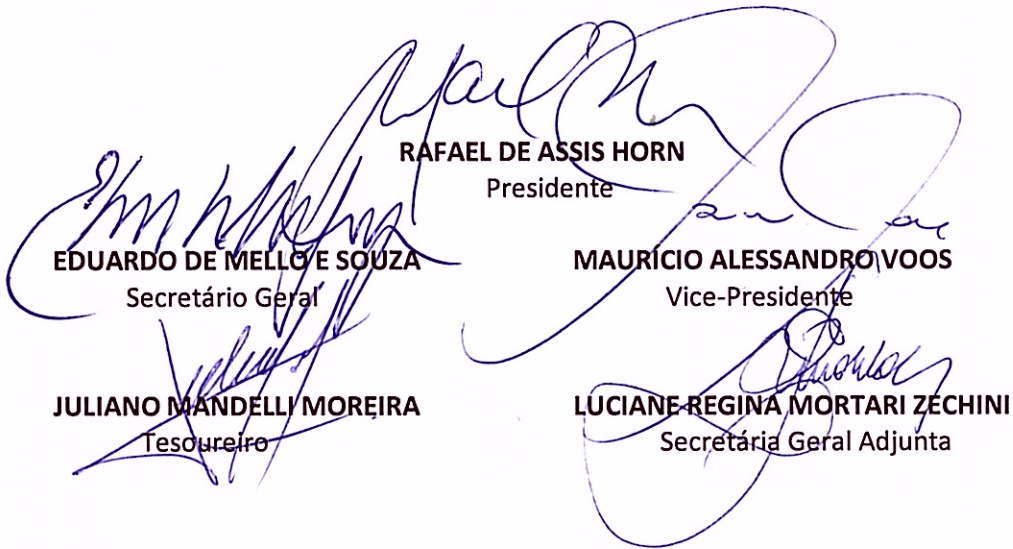 RAFAEL DE ASSIS HORN
Presidente
EDUARDO DE MELLO E SOUZA
Secretário Geral
MAURÍCIO ALESSANDRO VOOS
Vice-Presidente
JULIANO MANDELLI MOREIRA
Tesoureiro
LUCIANE REGINA MORTARI ZECHINI
Secretária Geral Adjunta